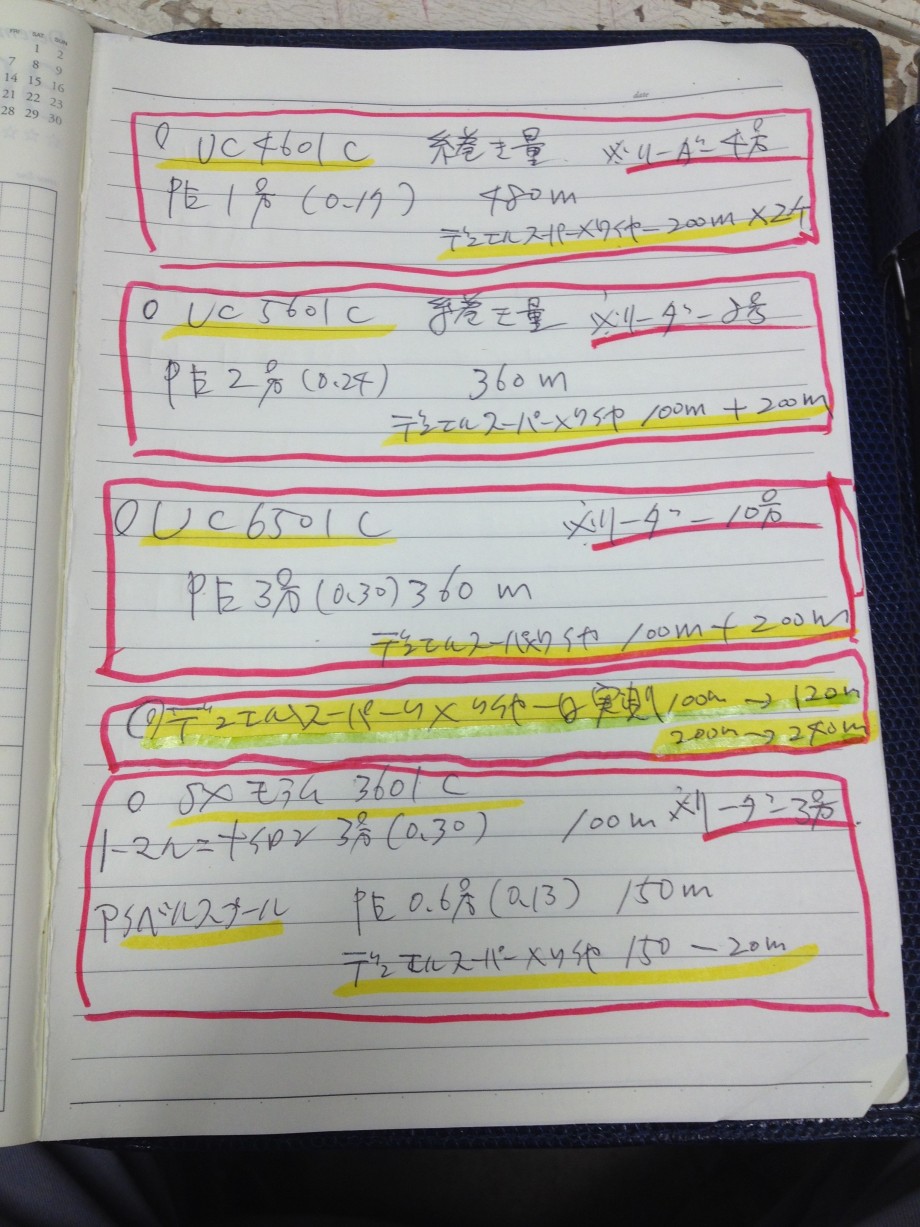 FRI SAT SUN
1 2
7 8 9
14 15 16
21 22 23
28 29 30
date
○ UC4601C 糸巻き量 ※リーダー4号
PE1号(0.17) 480m
デュエルスーパーXワイヤー200m×2ケ
○ UC5601C 糸巻き量 ※リーダー8号
PE2号(0.24) 360m
デュエルスーパーXワイヤ 100m+200m
○ UC6501C ※リーダー10号
PE3号(0.30) 360m
デュエルスーパXワイヤ 100m+200m
デュエルスーパーXワイヤー 実測 100m→120m
200m→240m
○ 3601C ※リーダー3号
3号(0.30) 100m
スプール PE0.6号(0.13) 150m
デュエルスーパーXワイヤ 150-20m